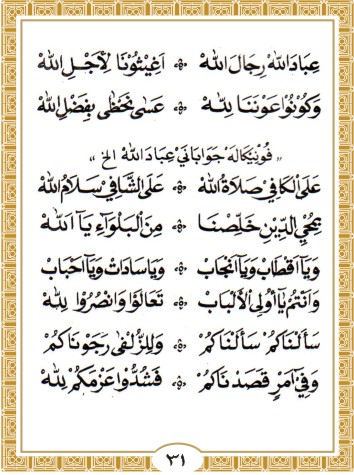 عِبَادَ اللهْ رِجَالَ اللهْ ۞ اَغِيْثُوْنَا لِأَجْلِ اللهْ
وَكُوْنُوْا عَوْنَنَا لِلّٰهْ ۞ عَسَى نَحْظَى بِفَضْلِ اللهْ
« فُوْنِيْكَالَهْ جَوَابَانَيْ عِبَادَ اللهْ الخ »
عَلَى الْكَافِيْ صَلَاةُ اللهْ ۞ عَلَى الشَّافِيْ سَلَامُ اللهْ
بِمُحْيِي الدِّيْنِ خَلِّصْنَا ۞ مِنَ الْبَلْوَاءِ يَآ اَللهْ
وَيَآ اَقْطَابْ وَيَآ اَنْجَابْ ۞ وَيَاسَادَاتْ وَيَآ اَحْبَابْ
وَاَنْتُمْ يَآ أُولِى الْأَلْبَابْ ۞ تَعَالَوْا وَانْصُرُوْا لِلّٰهْ
سَأَلْنَاكُمْ سَأَلْنَاكُمْ ۞ وَلِلزُّلْفٰى رَجَوْنَاكُمْ
وَفِيْ اَمْرٍ قَصَدْنَاكُمْ ۞ فَشُدُّوْا عَزْمَكُمْ لِلّٰهْ
٣١